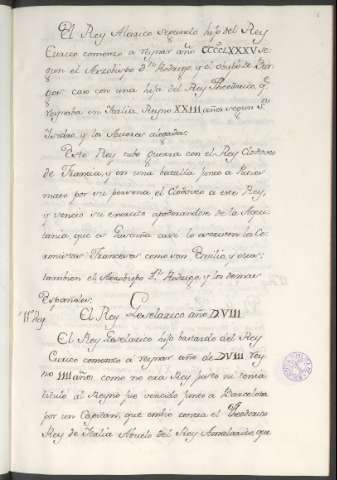 El Rey Alarico segundo hijo del Rey
Eurico comenzo a reynar año CCCCLXXXV se-
gun el Arzobispo Dn Rodrigo y el
gos: caso con una hija del Rey Theodorico q.
reynaba en Italia. Reyno XXIII años segun Sn
Isidro, y los Autores alegados.
Este Rey tubo guerra con el Rey Clodoveo
de Francia, y en una batalla junto a
mato por su persona el Clodoveo a este Rey,
y vencio su exercito apoderandose de la Aqui-
tania que es Gascuña
Franceses como son Emilio, y otros:
tambien el Arzobispo Dn Rodrigo, y los demas
Españoles.
11º Rey El Rey Gesalarico año DVIII
El Rey Gesalarico hijo bastardo del Rey
Eurico comenzo a reynar año de DVIII rey-
no IIII años como no era Rey justo ni tenia
titulo al Reyno fue vencido junto a Barcelona
por un Capitan, que embio contra el Theodorico
Rey de Italia Abuelo del Rey Amalarico que